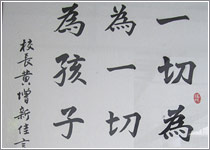 一切為
為一切
為孩子
校長黃增新佳言